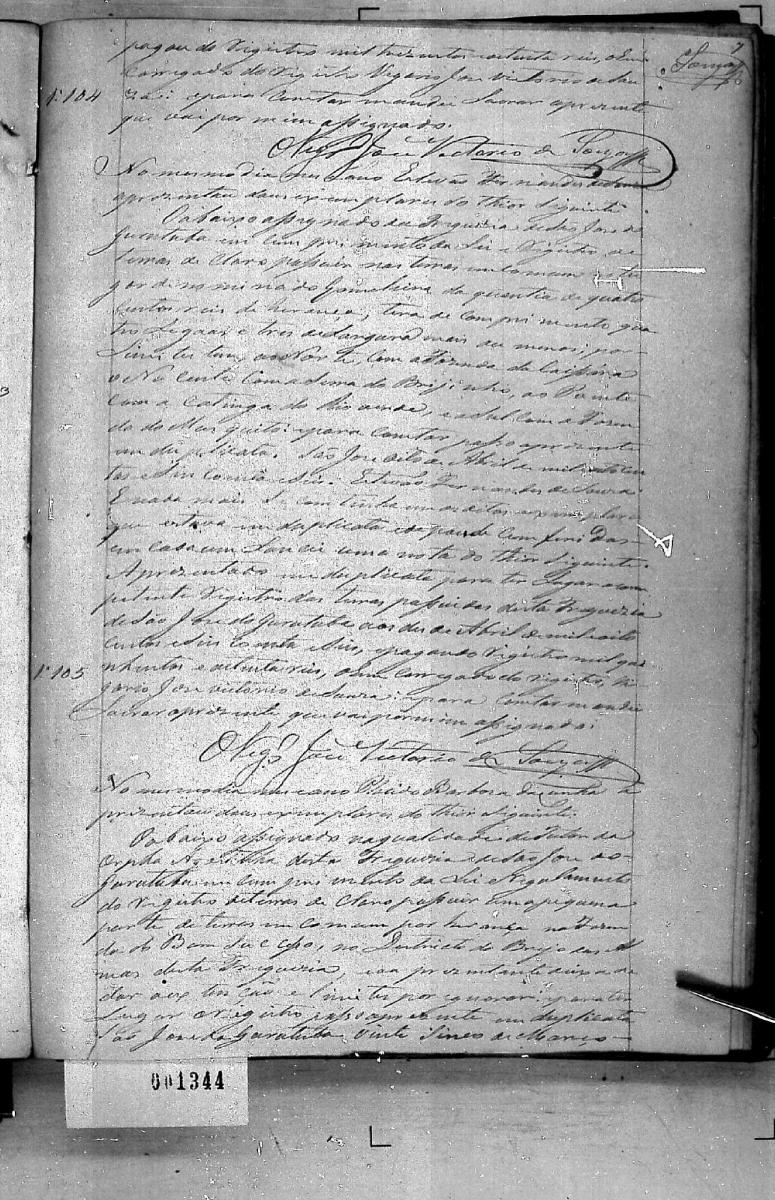 7
Souza
pagou de Registro mil trezentos oitenta reis, o En
carregado do Registro Vigario José Victorio de Sou
Nº 104
za: e para constar mandei lavrar a prezente
que vai por mim assignado.
O Vigrº José Victorio de Souza
No mesmo dia mez e anno Estevão Fernandes de Souza
aprezentou dous exemplares do thior siguinte
O abaixo assignado da Freguezia de São José do
Gurutuba em comprimento da Lei e Registro de
terras declaro possuir nas terras em comum no lu
gar denominado Gamelleira da quantia de quatro
centos reis de herança, terá de comprimento qua
tro Legoas e tres de Largura mais ou menos; por
Limites tem ao Norte, com a Fazenda da
o Nascente com a do Brijinho, ao Poente
com a Catinga do Rio verde, e ao Sul com a Fazen
da do Mosquito: e para constar passo a prezente
em duplicata. São José oito de Abril de mil oito cen
tos e Sincoenta e Seis. Estevão Fernandes de Souza.
E nada mais se continha em os ditos exemplares
que estava em duplicata e de pois de conferidos
em cada um Lancei uma nota do thior siguinte.
Aprezentado em duplicata para ter Lugar o com
petente Registro das terras possuidas desta Freguezia
de São José do Gurutuba aos des de Abril de mil oito
centos e Sincoenta e Seis, e pagou de Registro mil qui
Nº 105
nhentos e oitenta reis, o Encarregado do registro, Vi
gario José Victorio de Souza: e para constar mandei
Lavrar a prezente que vai por mim assignado.
O Vigrº José Victorio de Souza
No mesmo dia mez e anno Placido Barboza da Cunha a
prezentou dous exemplares do thior siguinte.
O abaixo assignado na qualidade de Tutor da
Orpha desta Freguezia de São José do
Gurutuba em comprimento da Lei e Regulamento
do Registro de terras declaro possuir uma piquena
parte de terras em comum por herança na Fazen
da do Bom Sucesso, no Districto do Brejo das A
mas desta Freguezia, e o aprezentante deixa de
dar a extenção e Limites por ignorar: e para ter
Lugar o registro passo a prezente em duplicata
São José do Gurutuba vinte Sinco de Março
001344